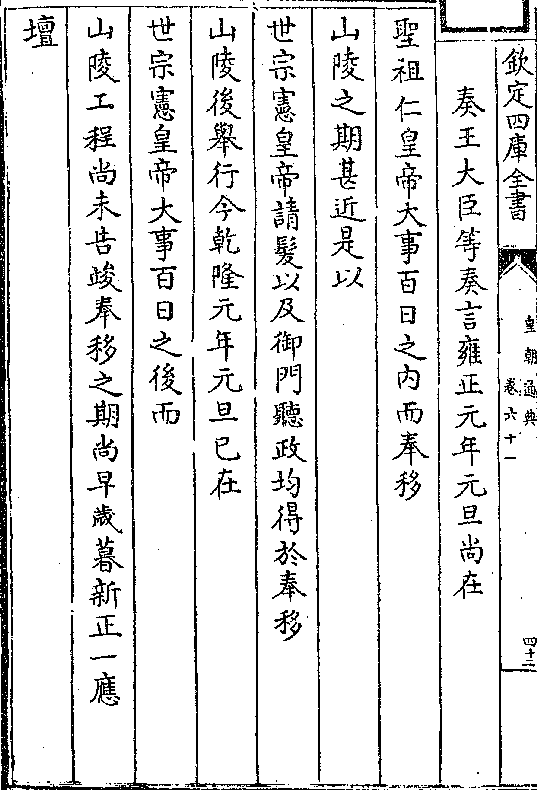 欽定四庫全書
皇朝通典
卷六十一
四十二
奏王大臣等奏言雍正元年元旦尚在
聖祖仁皇帝大事百日之內而奉移
山陵之期甚近是以
世宗憲皇帝請髮以及御門聽政均得於奉移
山陵後舉行今乾隆元年元旦已在
世宗憲皇帝大事百日之後而
山陵工程尚未告竣奉移之期尚早歲暮新正一應
壇